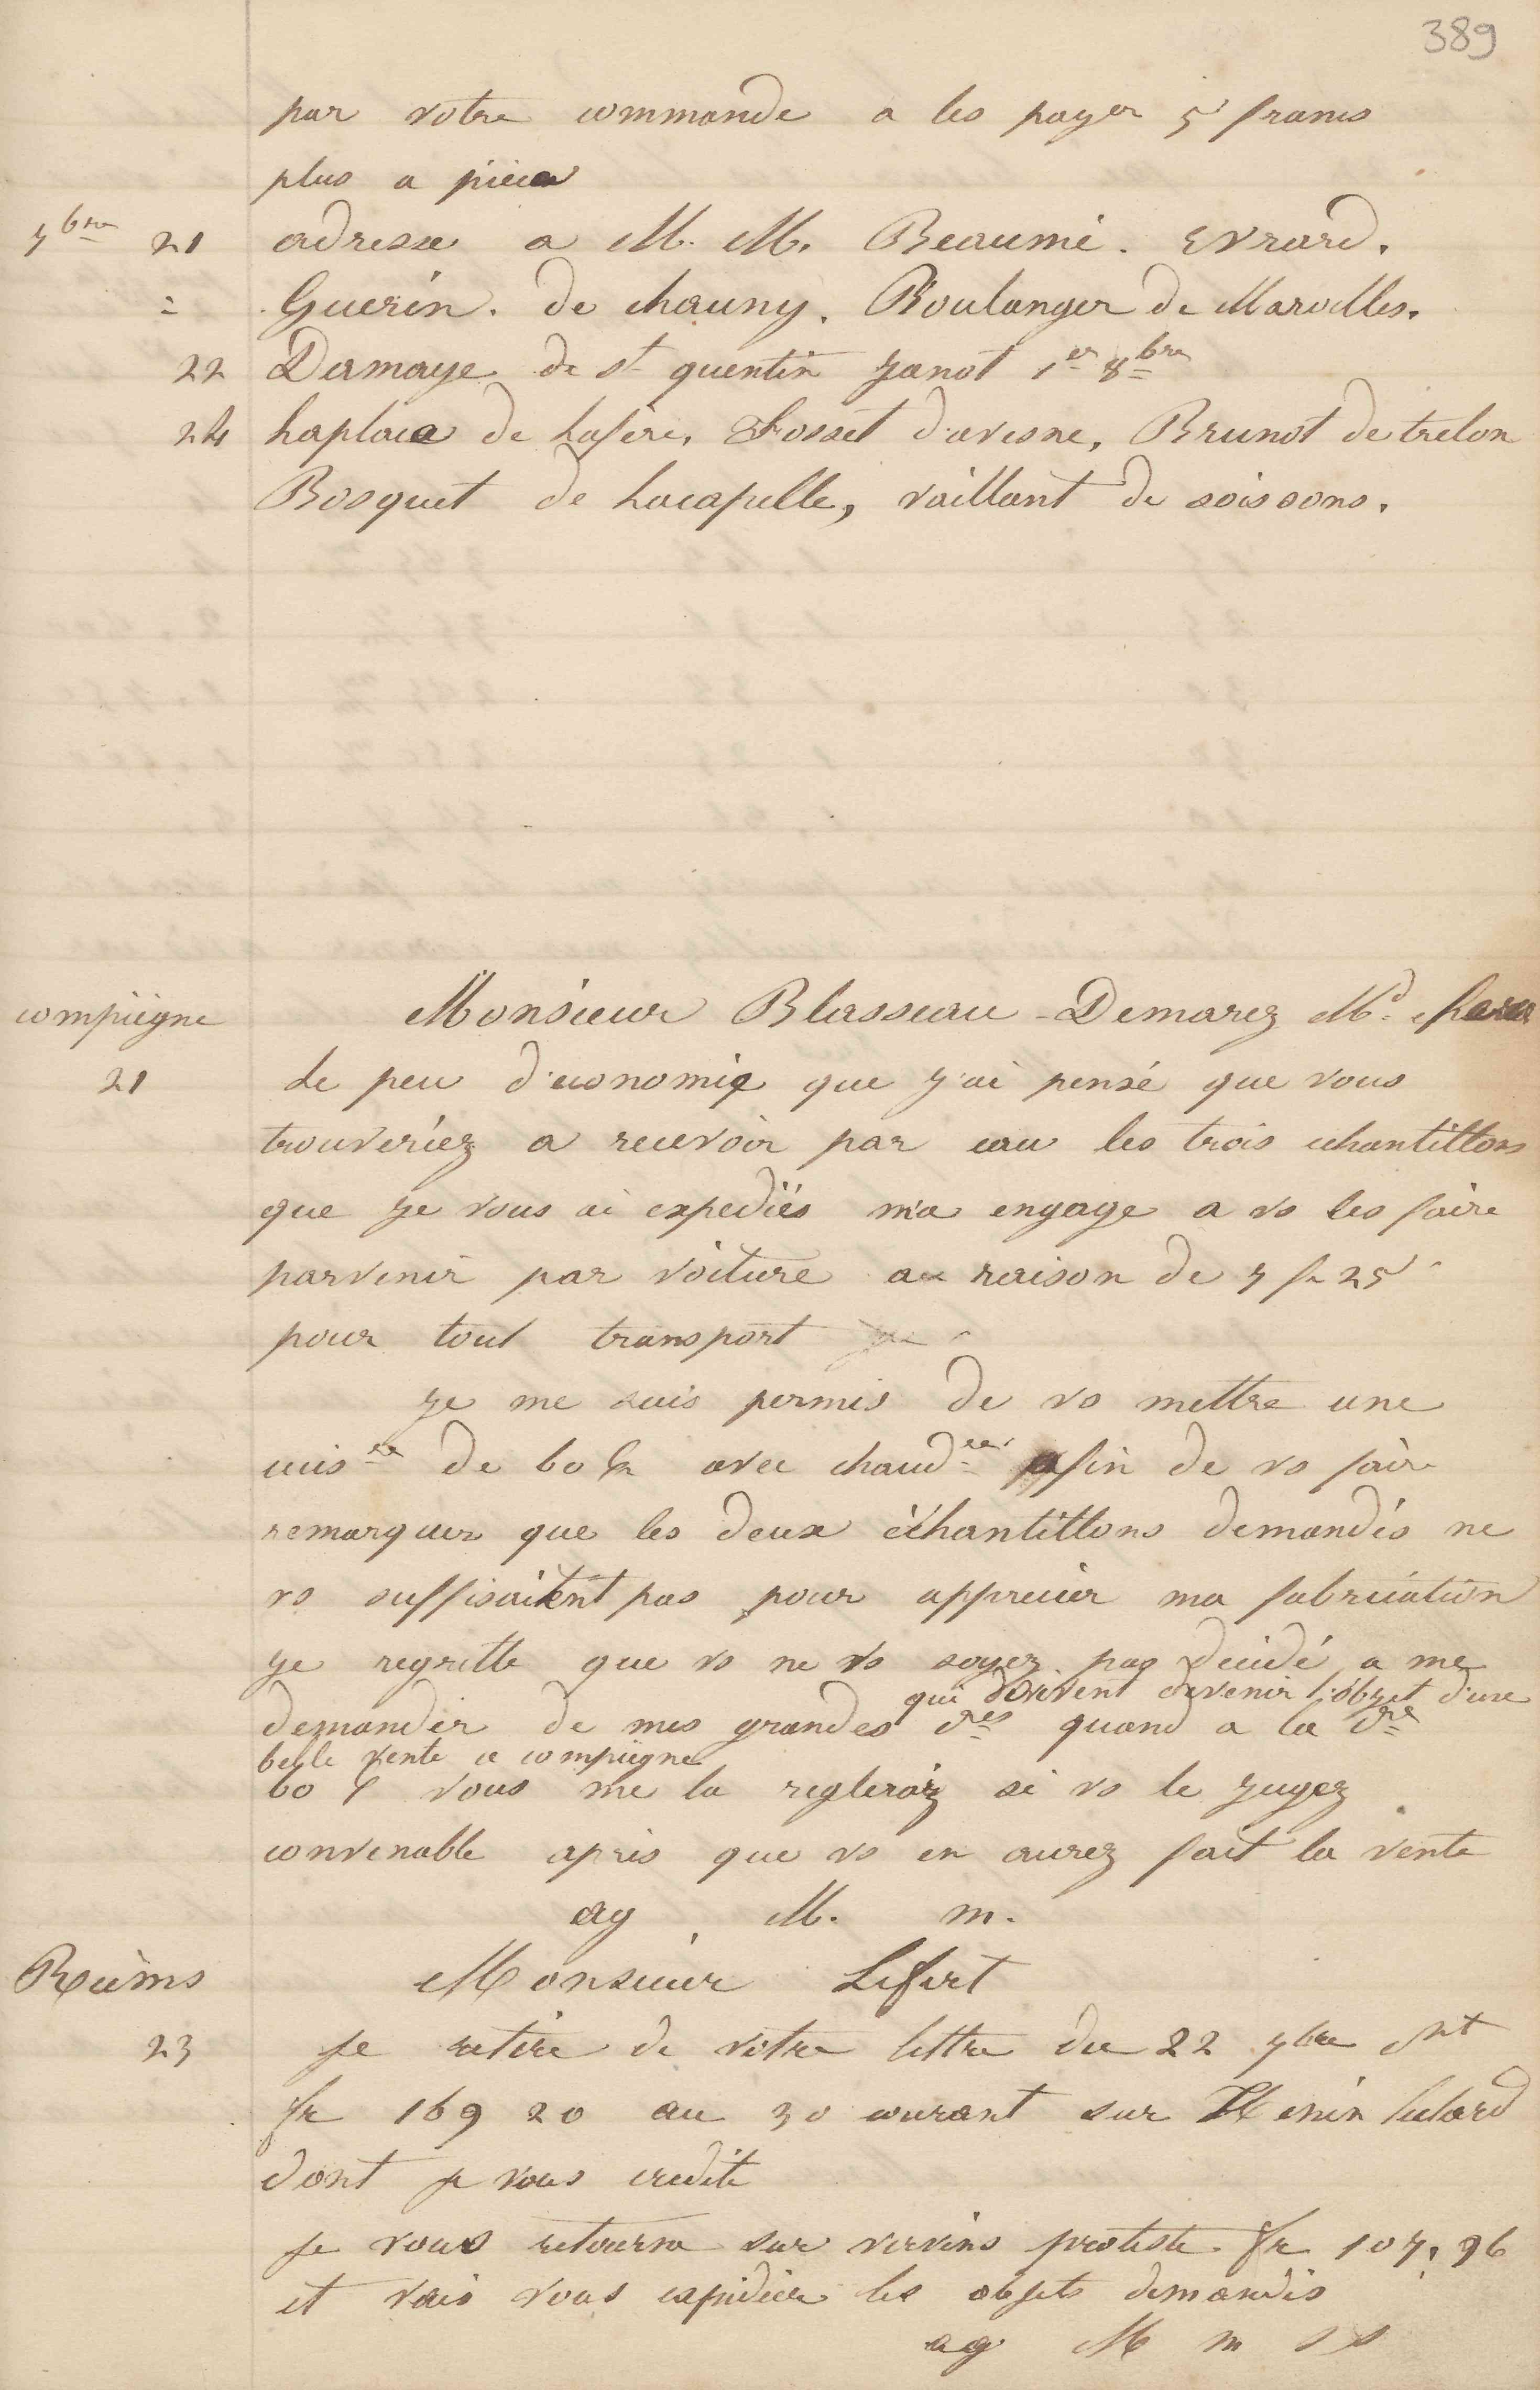 389
par votre commande a les payer 5 francs
plus a pièce
7bre 21 adresse a M. M. Beaumé. Evrard.
= Guerin. de chauny. Boulanger de Marolles.
22 Demaye de st quentin Janot 1er 8bre
24 Laplace de Lafère, Fosset d'avesne, Brunot de trelon
Bosquet de Lacapelle, vaillant de soissons.
compiègne Monsieur Blasseau-Demarez Md
21 Le peu d'economie que j'ai pensé que vous
trouveriez a recevoir par eau les trois echantillons
que je vous ai expediés m'a engage a vs les faire
parvenir par voiture a raison de 7 fr 25
pour tout transport
je me suis permis de vs mettre une
cuisre de 60 avec chaudre afin de vs faire
remarquer que les deux échantillons demandés ne
vs suffisaient pas pour apprecier ma fabrication
je regrette que vs ne vs soyez pas decidé a me
qui doivent devenir l'objet d'une
demander de mes grandes dres quand a la dre
belle vente a compiègne
60 vous me la reglerez si vs le jugez
convenable après que vs en aurez fait la vente
ag M. m.
Reims Monsieur Lefert
23 Je retire de votre lettre du 22 7bre
fr 169 20 au 30 courant sur Henin lietard
dont je vous credite
Je vous retourne sur vervins protesté fr 107, 96
et vais vous expedier les objets demandés
ag M m s s